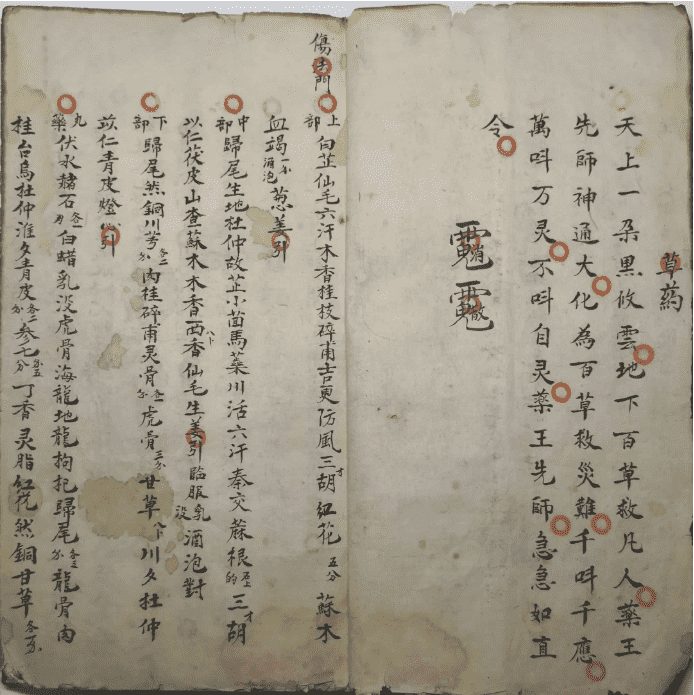 草葯
天上一朶黒攸雲地下百草救凡人藥王
先師神通大化為百草救災難千呌千應
萬呌万灵不呌自灵藥王先師急急如直
令
傷門
上部白芷仙毛六汗木香桂枝碎甫吉更防風三胡紅花五分蘇木
血竭酒泡葱姜引
中部歸尾生地杜仲故芷小茴馬藥川活六汗秦交蔴根三胡
以仁茯皮山查蘇木木香西香仙毛生姜引臨服乳没酒泡對
下部歸尾然銅川芎肉桂碎甫灵骨虎骨三分甘草川夕杜仲
苡仁青皮燈心引
丸藥伏水赭石白蜡乳没虎骨海龍地龍拘杞歸尾龍骨肉
桂台烏杜仲淮夕青皮参七丁香灵脂紅花然銅甘草